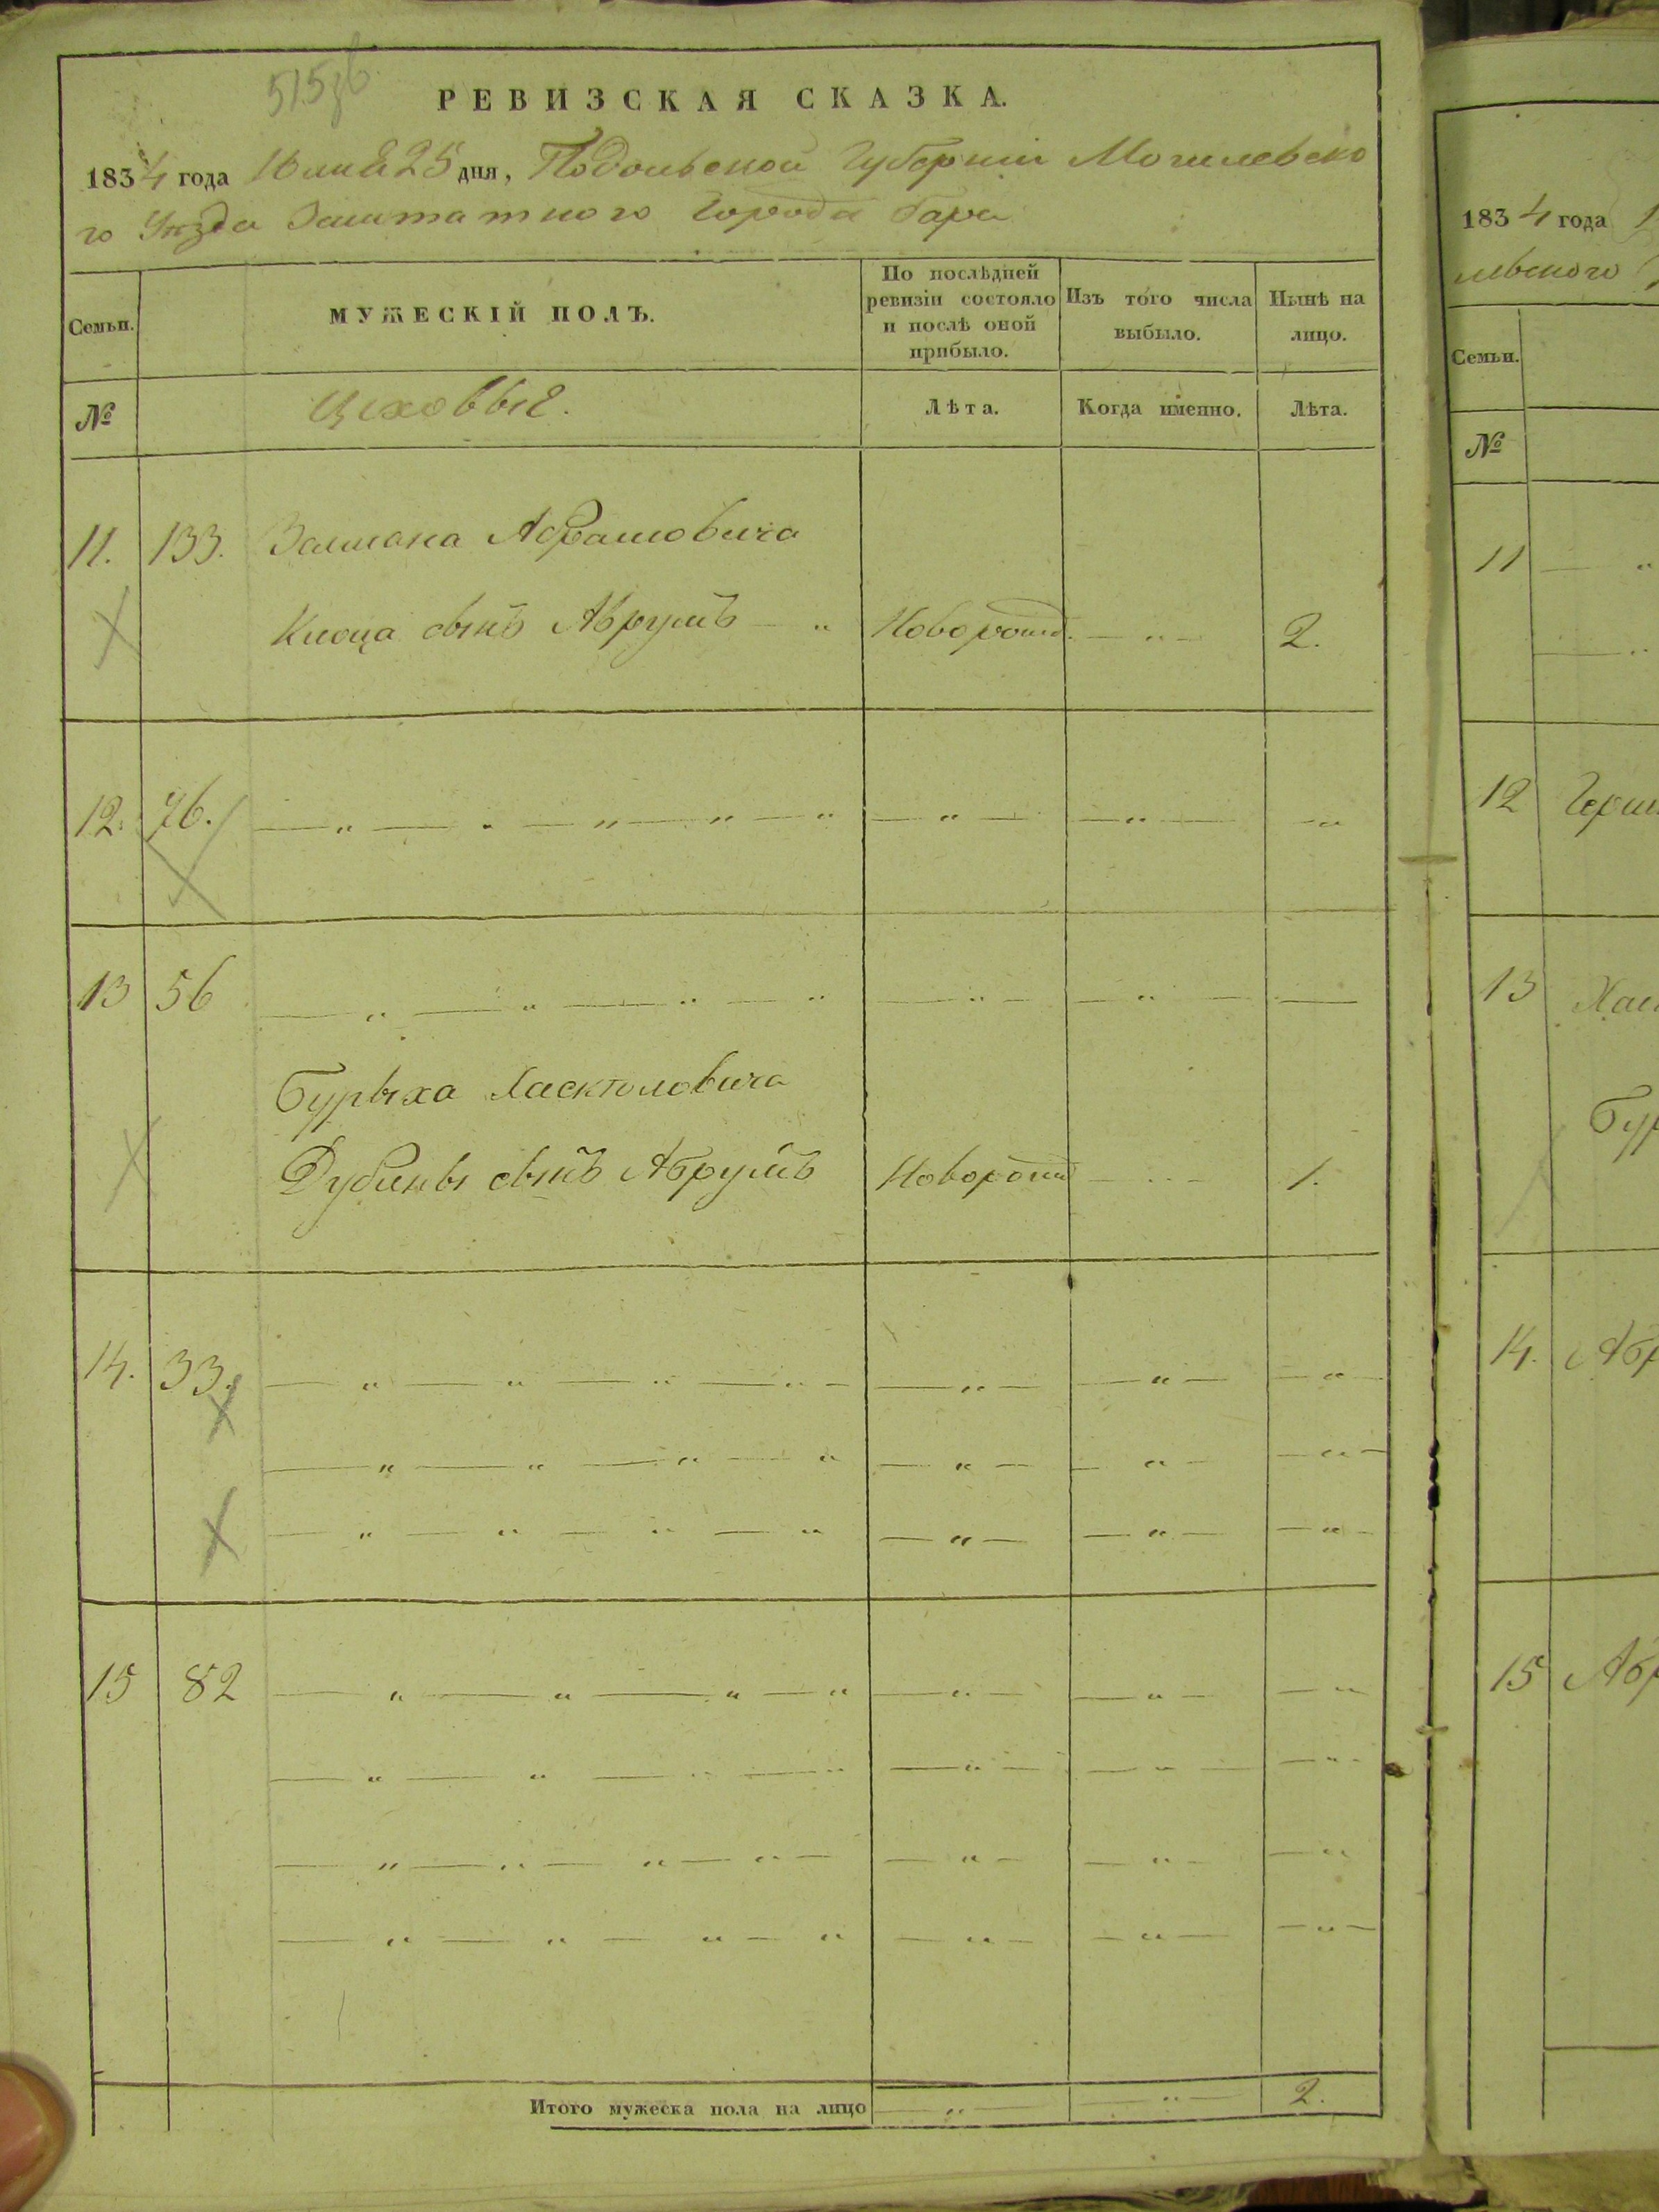 515 зв
РЕВИЗСКАЯ СКАЗКА.
1834 года Юлия 25 дня, Подольской Губерніи Могилевско
го Уѣзда Заштатного Города Бара
Семьи.
МУЖЕСКІЙ ПОЛЪ.
По послѣдней
ревизіи состояло
и послѣ оной
прибыло.
Изъ того числа
выбыло.
Нынѣ на
лицо.
№
Цеховые.
Лѣта.
Когда именно.
Лѣта.
11. 133. Залмана Абрамовича
Клоца сынъ Аврумъ — " Новорожд. — " — 2.
12. 76.
13 56
Бурыха Хаскелевича
Дубины сынъ Абрумъ Новорожд — " — 1.
14. 33.
15 82
Итого мужеска пола на лицо — " — " — 2.
1834 года
левского
Семьи.
№
11
12 Герш
13 Хас
Бур
14. Абр
15 Абр